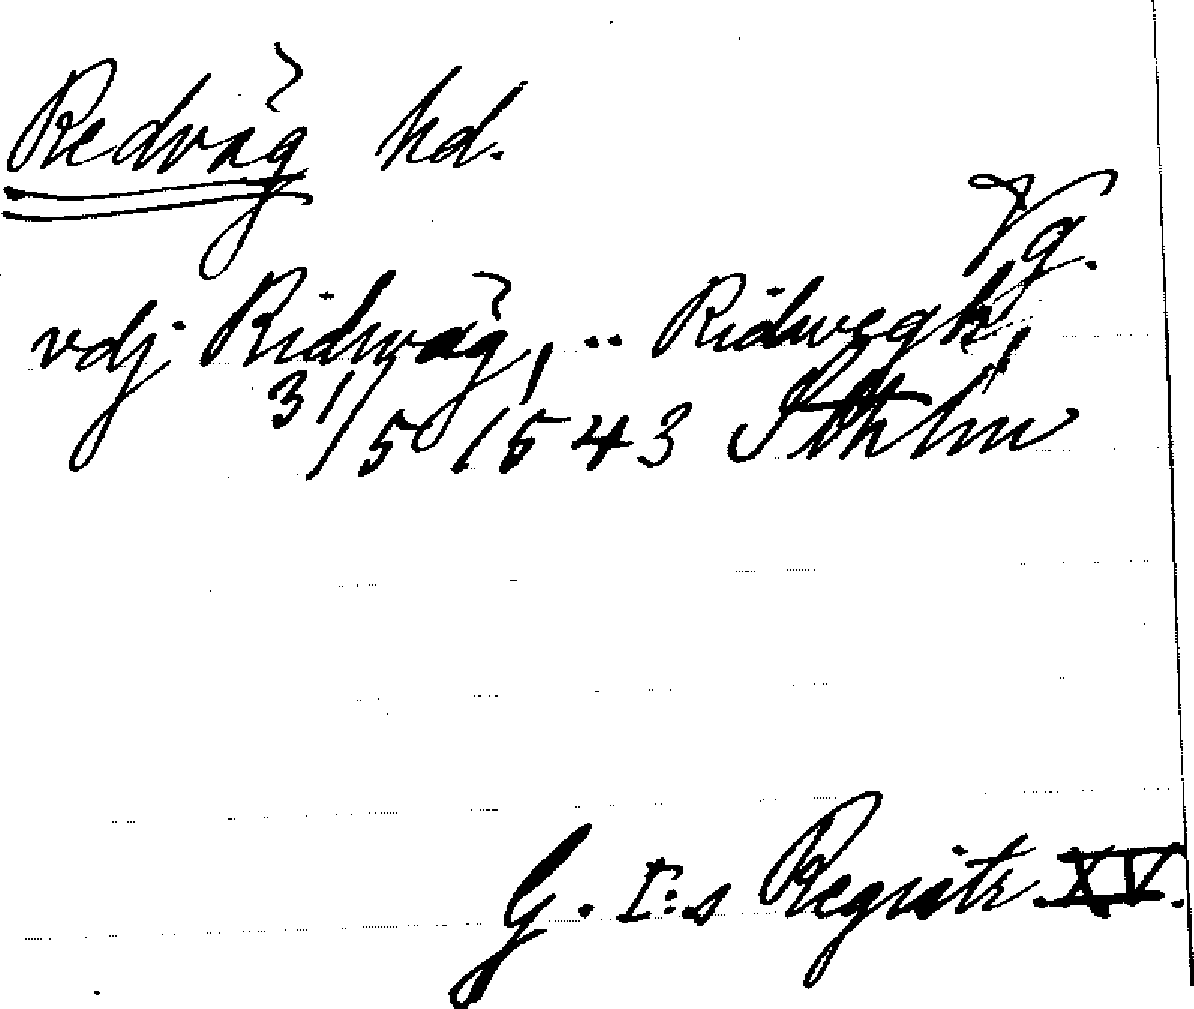 Redvåg hd.
Vg.
vdj Ridwåg, .. Ridwegh,
31/5 1543 Sthlm
G. I:s Registr. XV.